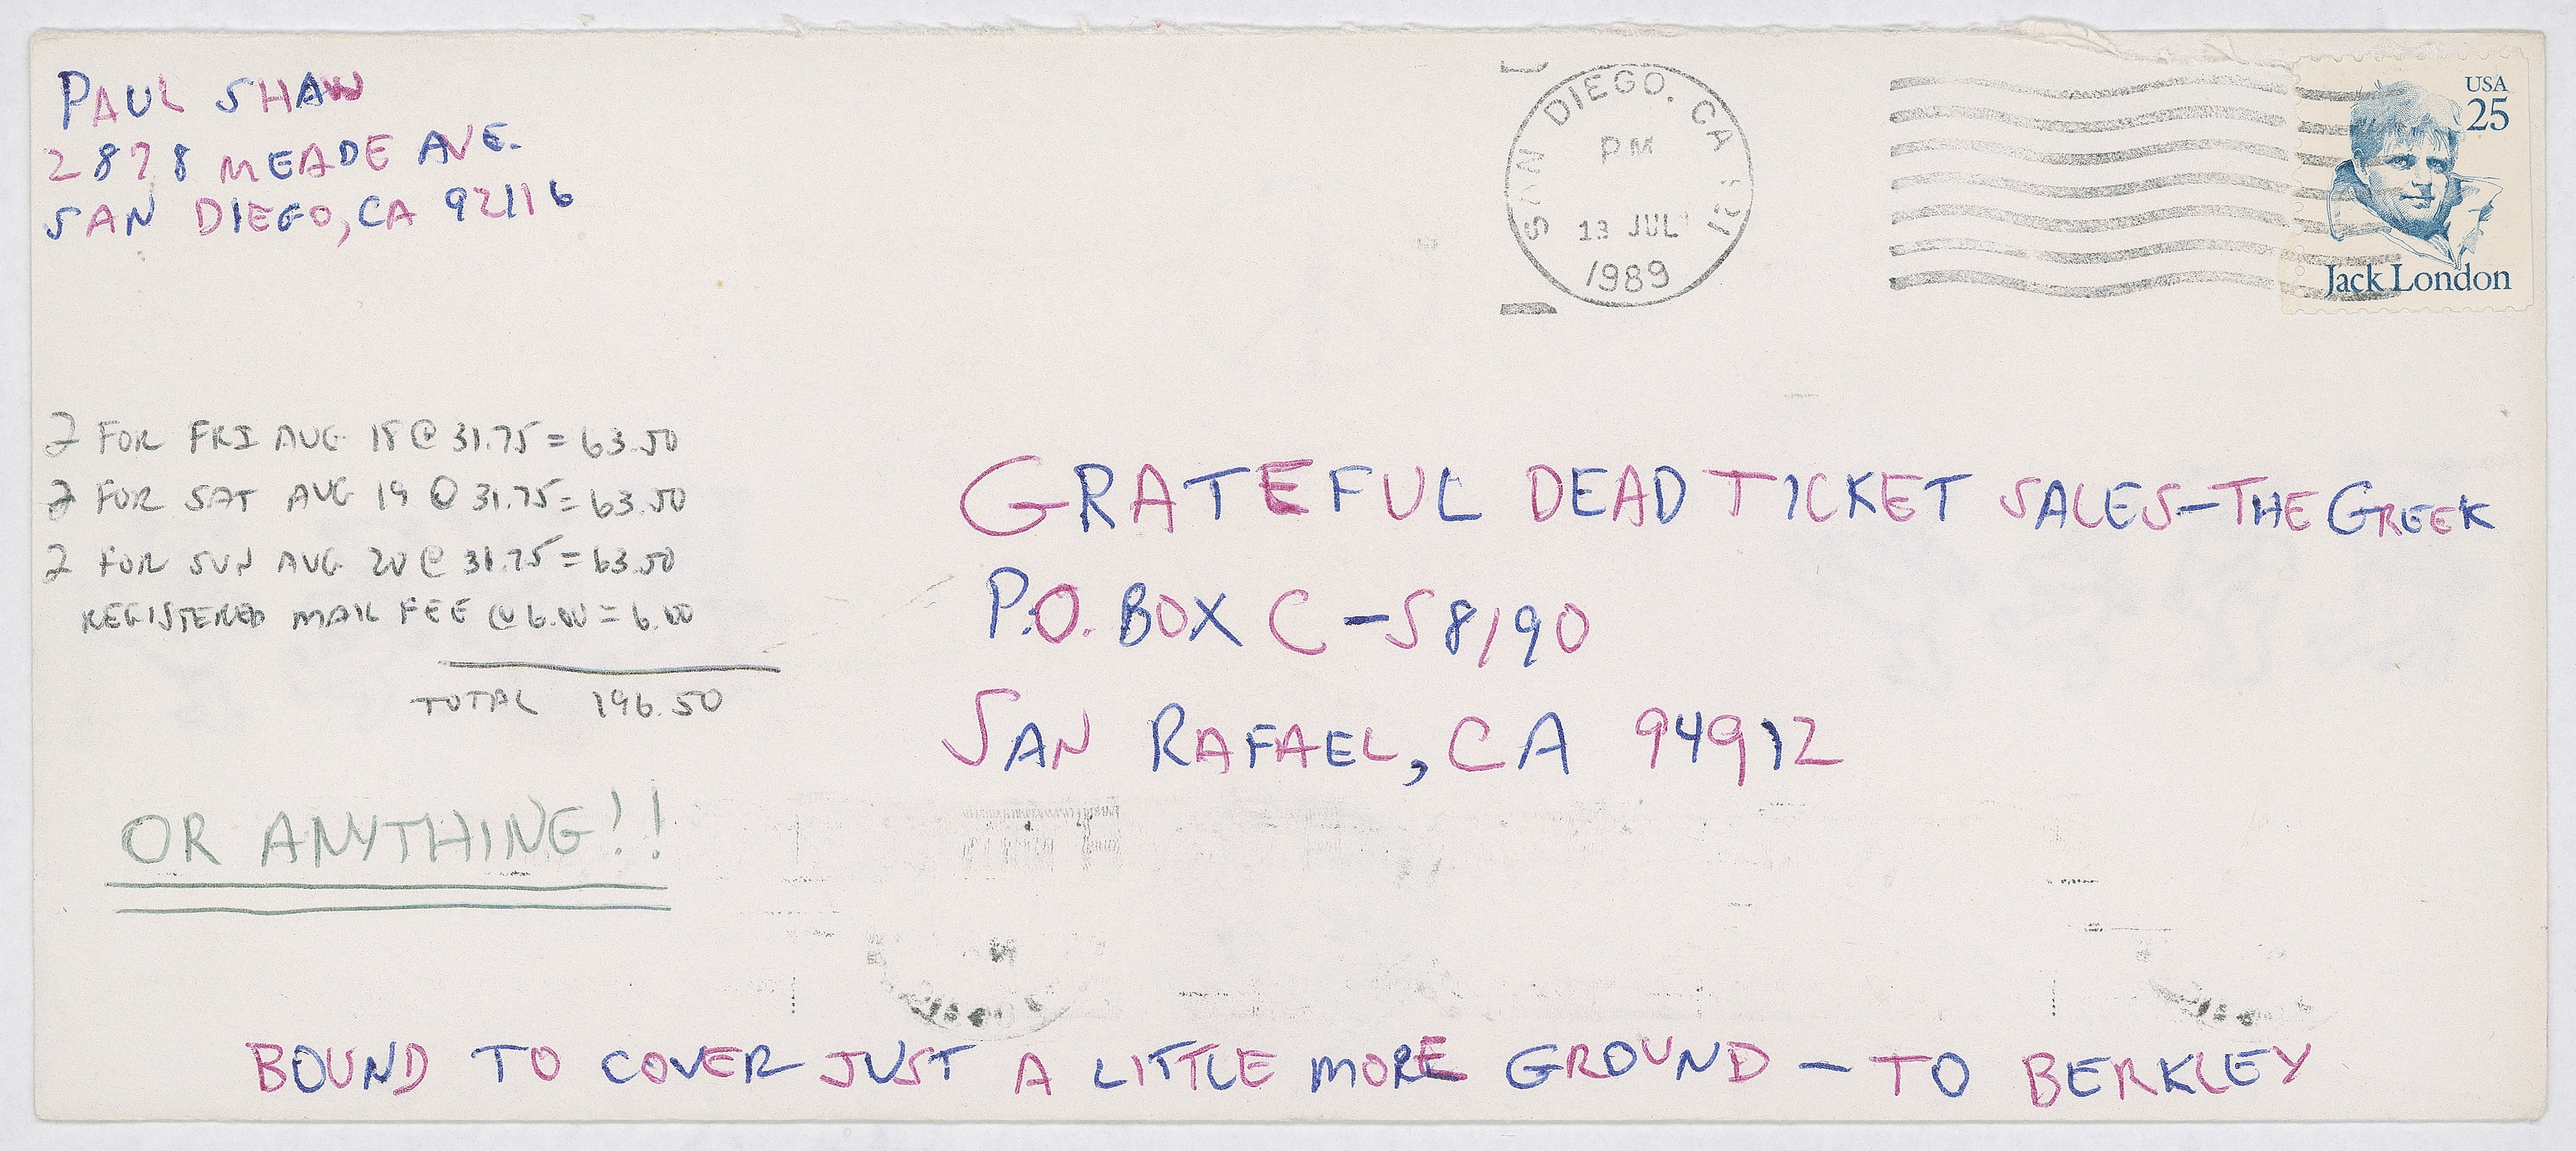 PAUL SHAW
2878 MEADE AVE.
SAN DIEGO, CA 92116
SAN DIEGO, CA 921
PM
13 JUL
1989
USA
25
Jack London
2 FOR FRI AUG 18 @ 31.75 = 63.50
2 FOR SAT AUG 19 @ 31.75 = 63.50
2 FOR SUN AUG 20 @ 31.75 = 63.50
REGISTERED MAIL FEE @ 6.00 = 6.00
TOTAL 196.50
OR ANYTHING!!
GRATEFUL DEAD TICKET SALES—THE GREEK
P.O. BOX C-S8190
SAN RAFAEL, CA 94912
BOUND TO COVER JUST A LITTLE MORE GROUND — TO BERKLEY